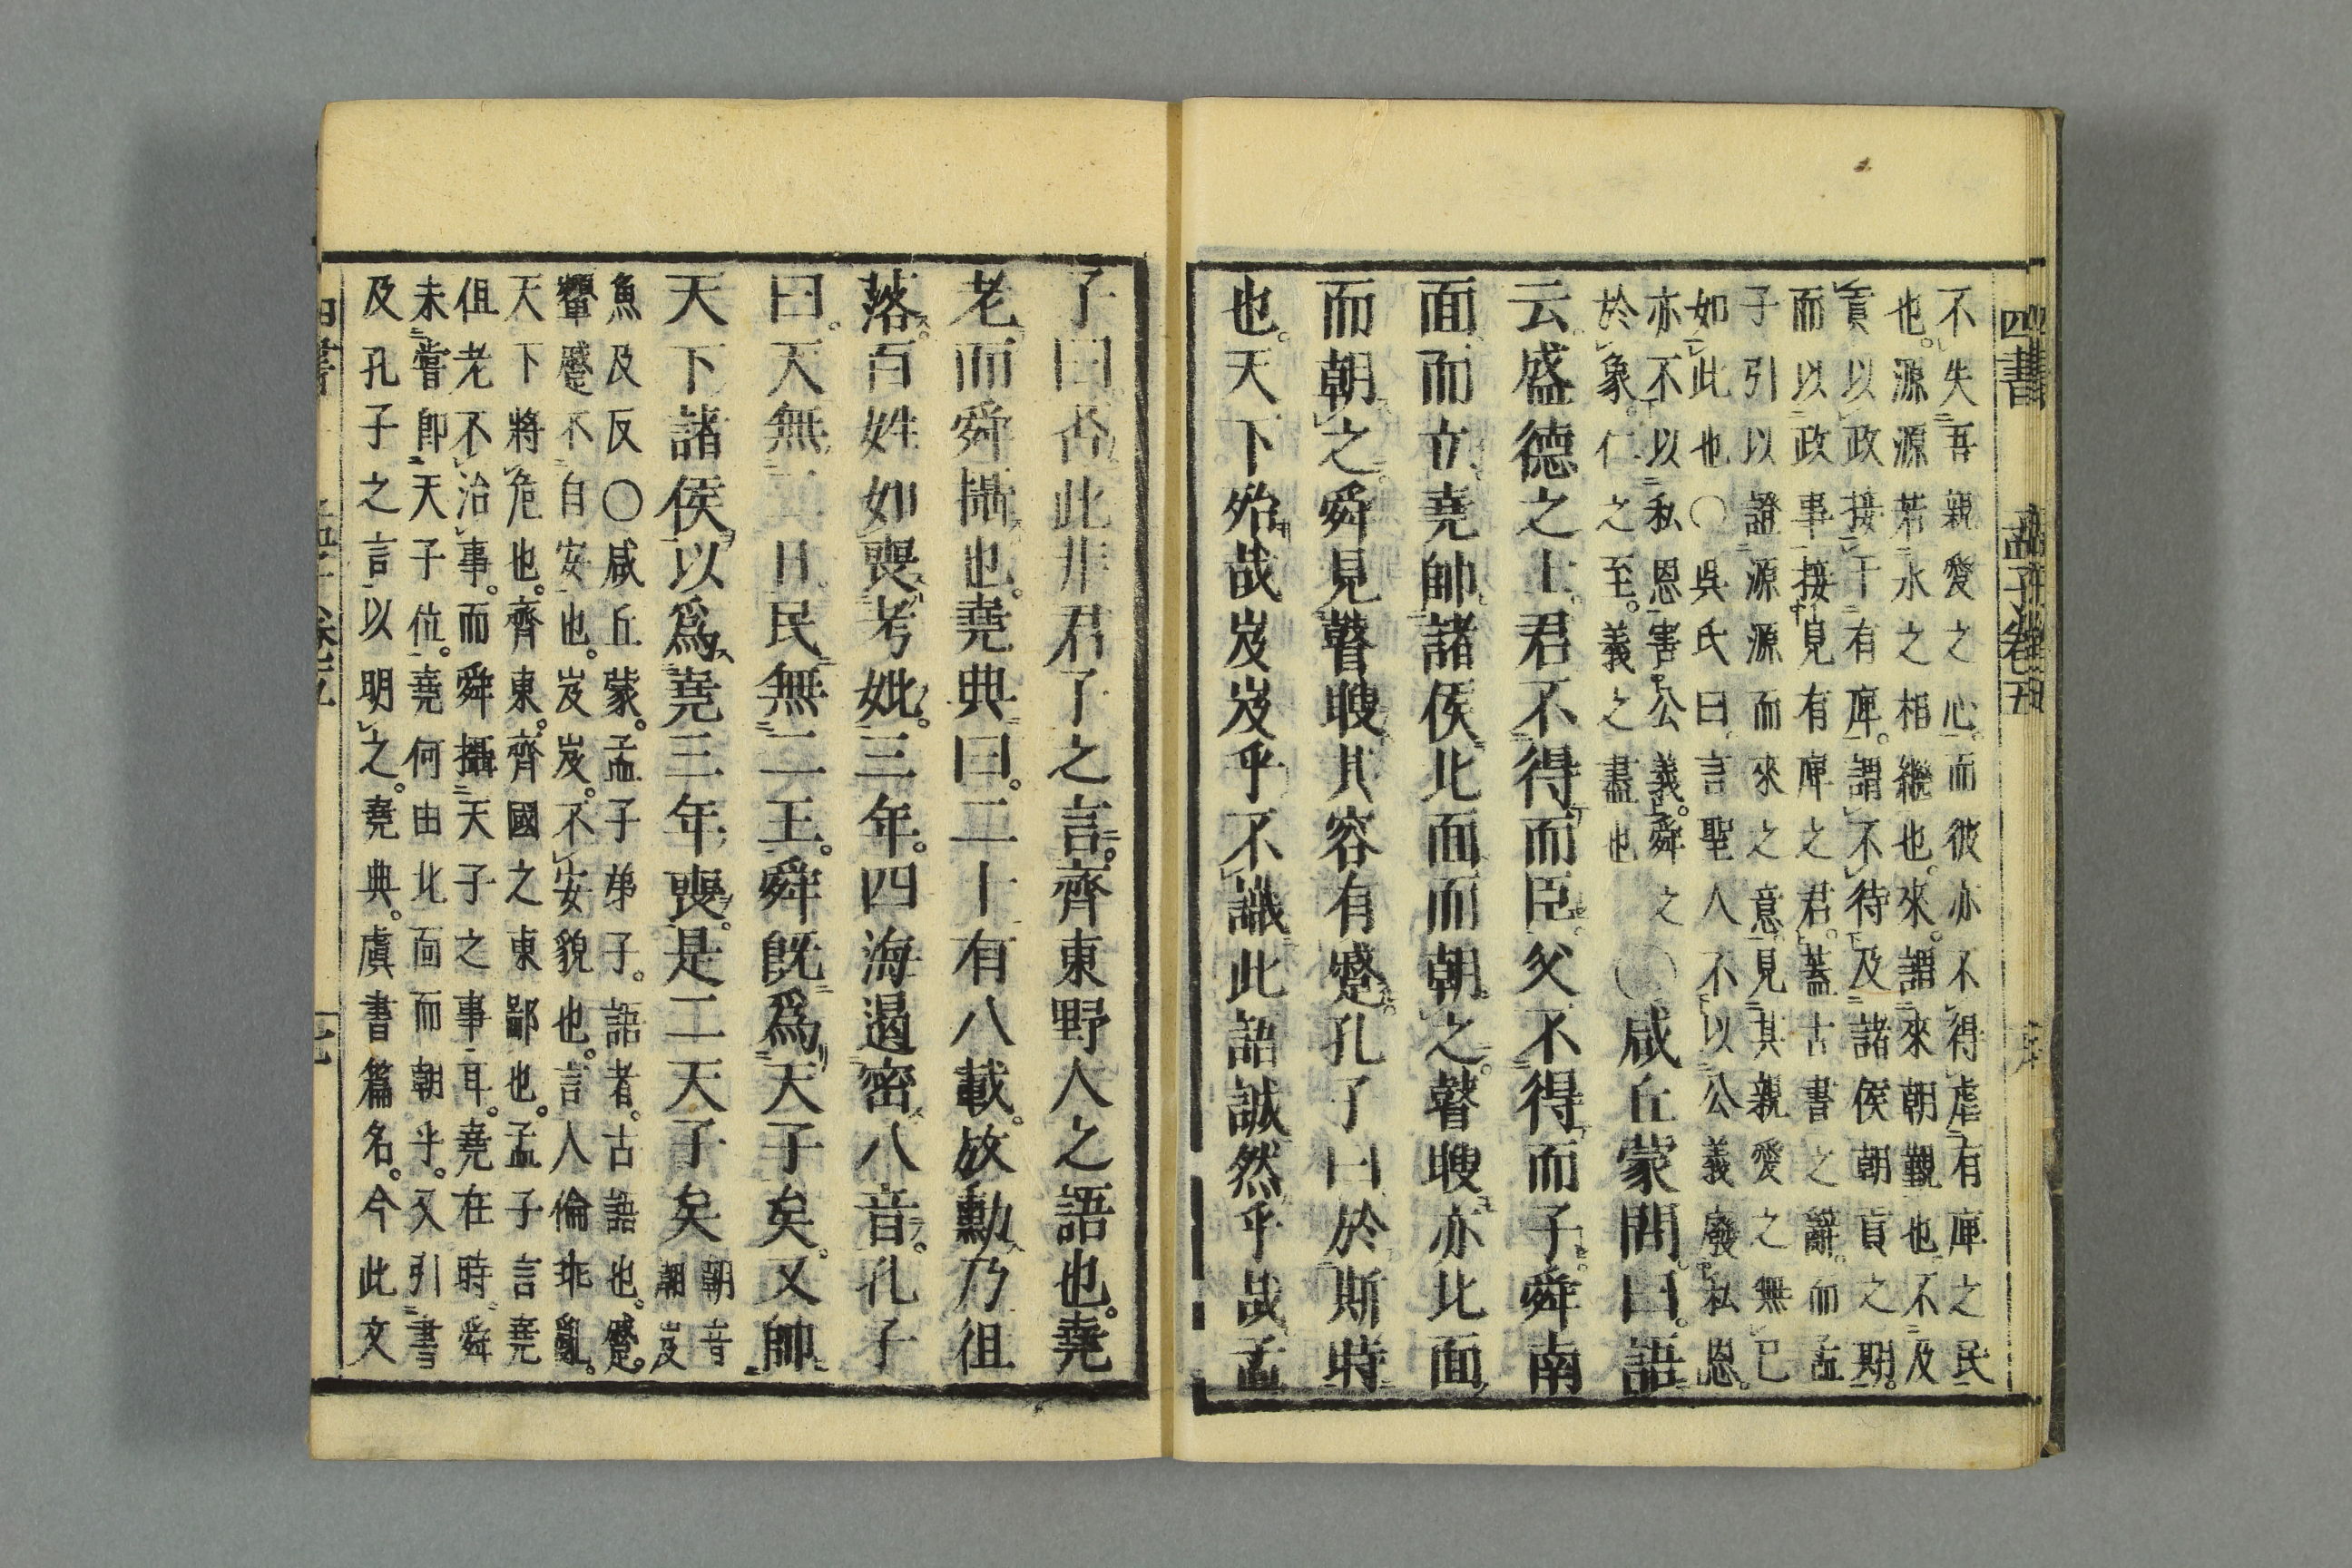 四書　孟子卷五
不失吾親愛之心。而彼亦不得虐有庳之民
也。源源若水之相繼也。來。謂來朝覲也不及
貢以政接于有庳。謂不待及諸侯朝貢之期。
而以政事接見有庳之君。蓋古書之辭。而孟
子引以證源源而來之意。見其親愛之無已
如此也○吳氏曰。言聖人不以公義廢私恩。
亦不以私恩害公義。舜之
於象。仁之至。義之盡也
○咸丘蒙問曰。語
云盛德之士君不得而臣。父不得而子。舜南
面而立堯帥諸侯北面而朝之。瞽瞍亦北面
而朝之。舜見瞽瞍其容有蹙。孔子曰於斯時
也。天下殆哉岌岌乎不識此語誠然乎哉孟
子曰否此非君子之言。齊東野人之語也。堯
老而舜攝也。堯典曰。二十有八載。放勳乃徂
落。百姓如喪考妣。三年。四海遏密八音。孔子
曰。天無二日民無二王。舜旣爲天子矣。又帥
天下諸侯以爲堯三年喪。是二天子矣
朝音
潮岌
魚及反○咸丘蒙。孟子弟子。語者。古語也。蹙。
顰蹙不自安也。岌岌。不安貌也。言人倫乖亂。
天下將危也。齊東。齊國之東鄙也。孟子言堯
但老不治事。而舜攝天子之事耳。堯在時舜
未嘗卽天子位。堯何由北面而朝乎。又引書
及孔子之言以明之。堯典。虞書篇名。今此文